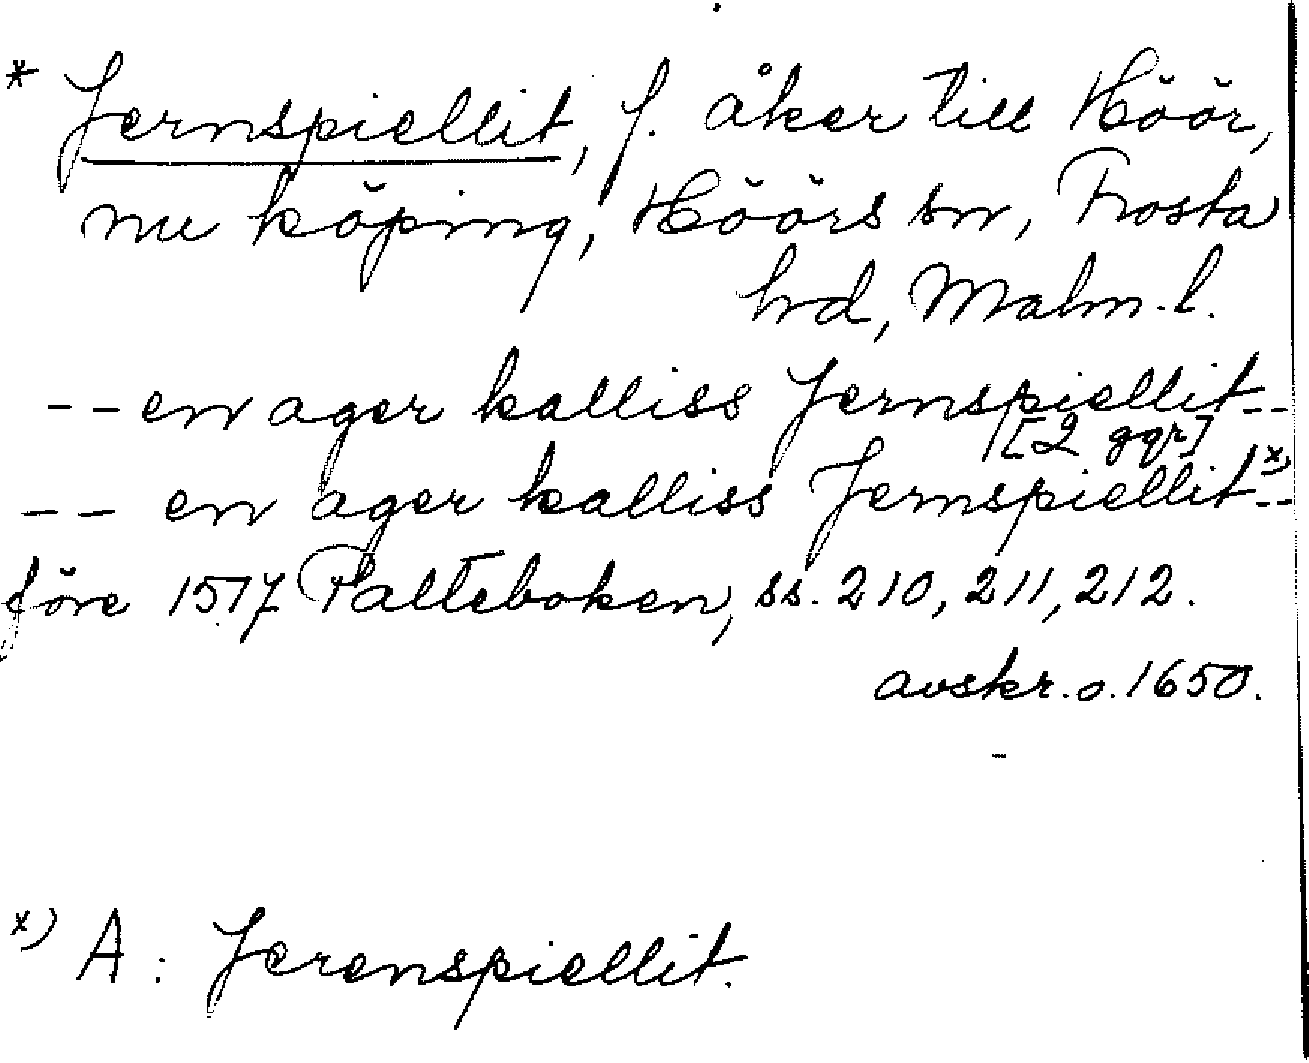 * Jernspiellit, f. åker till Höör,
nu köping, Höörs sn, Frosta
hrd, Malm. l.
-- en ager kalliss Jernspiellit --
[2 ggr]
-- en ager kalliss Jernspiellit x) --
före 1517 Palteboken, ss. 210, 211, 212.
avskr. o. 1650.
x) A: Jerenspiellit.